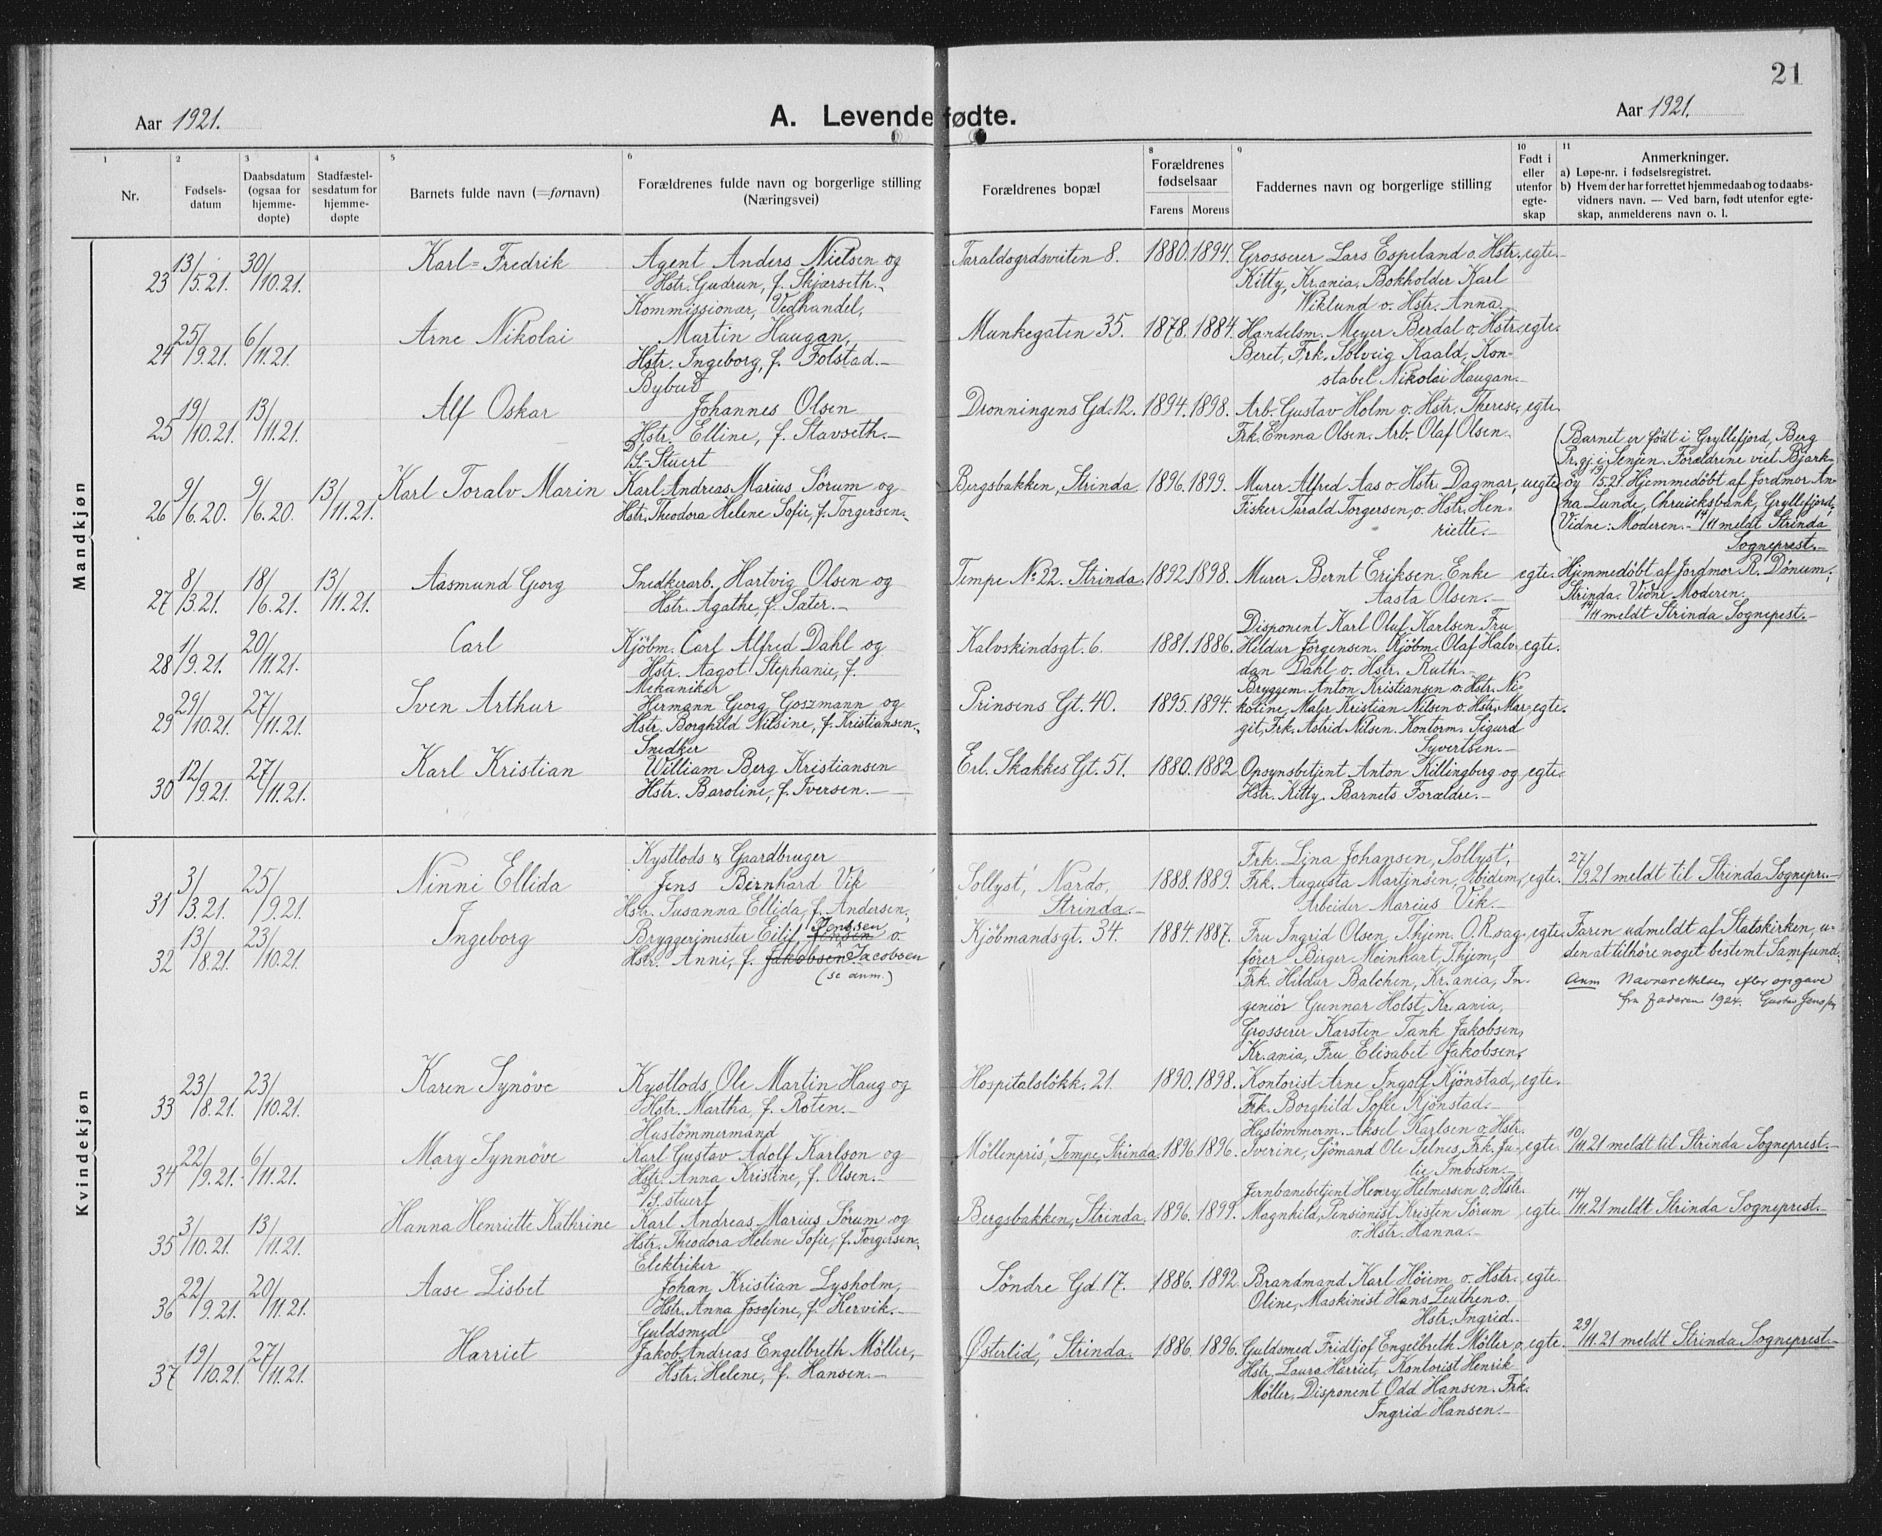 21
Aar 1921.
A. Levendefødte.
Aar 1921.
1 Nr.
2 Fødsels-datum
3 Daabsdatum (ogsaa for hjemme-døpte)
4 Stadfæstel-sesdatum for hjemme-døpte
5 Barnets fulde navn (=fornavn)
6 Forældrenes fulde navn og borgerlige stilling (Næringsvei)
Forældrenes bopæl
8 Forældrenes fødselsaar
Farens Morens
9 Faddernes navn og borgerlige stilling
10 Født i eller utenfor egte-skap
11 Anmerkninger.
a) Løpe-nr. i fødselsregistret.
b) Hvem der har forrettet hjemmedaab og to daabs-vidners navn. — Ved barn, født utenfor egte-skap, anmelderens navn o. l.
Mandkjøn
23 13/5.21. 30/10.21. Karl=Fredrik
Agent Anders Nielsen og
Hstr. Gudrun, f. Skjærseth.-
Taraldsgrdsveiten 8. 1880. 1894.
Grosserer Lars Espeland o. Hstr.
Kitty, Kr.ania, Bokholder Karl
Wiklund o. Hstr. Anna.-
egte.
24 25/9.21. 6/11.21. Arne Nikolai
Kommissionær, Vedhandel,
Martin Haugan,
Hstr. Ingeborg, f. Folstad.-
Munkegaten 35. 1878. 1884.
Handelsm. Meyer Berdal o. Hstr.
Beret, Frk. Solveig Kaald, Kon-
stabel Nikolai Haugan.-
egte.
25 19/10.21. 13/11.21. Alf Oskar
Bybud
Johannes Olsen
Hstr. Elline, f. Stavseth.-
Dronningens Gd. 12. 1894. 1898.
Arb. Gustav Holm o. Hstr. Therese,
Frk. Emma Olsen. Arb. Olaf Olsen.
egte.
26 9/6.20. 9/6.20. 13/11.21. Karl Toralv Marin
D/S.-Stuert
Karl Andreas Marius Sörum og
Hstr. Theodora Helene Sofie, f. Torgersen.-
Bergsbakken, Strinda 1896. 1899.
Murer Alfred Aas o. Hstr. Dagmar,
Fisker Tarald Torgersen, o. Hstr. Hen-
riette.-
uegte
Barnet er født i Gryllefjord, Berg
Pr.gj. i Senjen. Forældrene viet Bjark-
øy 13/5.21. Hjemmedöbt af Jordmor An-
na Lunde, Gryllefjord,
Vidne: Moderen.- 14/11 meldt Strinda
Sogneprest.-
27 8/3.21. 18/6.21. 13/11.21. Aasmund Georg
Snedkerarb. Hartvig Olsen og
Hstr. Agathe, f. Sater.-
Tempe No 22. Strinda. 1892. 1898.
Murer Bernt Eriksen. Enke
Aasta Olsen.-
egte.
Hjemmedöbt af Jordmor R. Dönum,
Strinda. Vidne Moderen.
14/11 meldt Strinda Sognepest.-
28 1/9.21. 20/11.21. Carl
Kjöbm. Carl Alfred Dahl og
Hstr. Aagot Stephanie, f.
Kalvskindsgt. 6. 1881. 1886.
Disponent Karl Oluf Karlsen Fru
Hildur Jörgensen. Kjöbm. Olaf Halv-
dan Dahl o. Hstr. Ruth.-
egte.
29 29/10.21. 27/11.21. Sven Arthur
Mekaniker
Hermann Georg Goszmann og
Hstr. Borghild Nilsine, f. Kristiansen.-
Prinsens Gt. 40. 1895. 1894.
Bryggem. Anton Kristiansen o. Hstr. Ni-
koline, Maler Kristian Nilsen o. Hstr. Mar-
git, Frk. Astrid Nilsen. Kontorm. Sigurd
Syvertsen.-
egte.
30 12/9.21. 27/11.21. Karl Kristian
Snedker
William Berg Kristiansen
Hstr. Baroline, f. Iversen.-
Erl. Skakkes Gt. 51. 1880. 1882
Opsynsbetjent Anton Killingberg og
Hstr. Kitty. Barnets Forældre.-
egte.
Kvindekjøn
31 3/3.21. 25/9.21. Ninni Ellida
Kystlods & Gaardbruger
Jens Bernhard Vik
Hstr. Susanna Ellida, f. Andersen,
Sollyst, Nardo,
Strinda.-
1888. 1889.
Frk. Lina Johansen, Sollyst,
Frk. Augusta Martinsen, ibidem,
Arbeider Marius Vik.-
egte.
27/9.21 meldt til Strinda Sognepr.-
32 13/8.21. 23/10.21. Ingeborg
Bryggerimester Eilif Jensen Jenssen o.
Hstr. Anni, f. Jakobsen. Jacobsen
(se anm.)
Kjöbmandsgt. 34. 1884. 1887.
Fru Ingrid Olsen, Thjem. O.R.sag-
förer Birger Meinharl, Thjem,
Frk. Hildur Balchen, Kr.ania, In-
geniör Gunnar Holst, Kr.ania,
Grosserer Karsten Tank Jakobsen,
Kr.ania, Fru Elisabet Jakobsen.
egte.
Faren udmeldt af Statskirken, u-
den at tilhöre noget bestemt Samfund.
Anm Navnerettelsen efter opgave
fra faderen 1924. Gustav Jenssen
33 23/8.21. 23/10.21. Karen Synöve
Kystlods, Ole Martin Haug og
Hstr. Martha, f. Roten.-
Hospitalslökk. 21. 1890. 1898.
Kontorist Arne Ingolf Kjönstad,
Frk. Borghild Sofie Kjönstad.-
egte.
34 22/9.21. 6/11.21. Mary Synnöve
Hustömmermand
Karl Gustav Adolf Karlson og
Hstr. Anna Kristine, f. Olsen.-
Möllenpris, Tempe, Strinda 1896. 1896.
Hustömmerm. Aksel Karlsen o. Hstr.
Sverine, Sjömand Ole Selnes, Frk. Ju-
lie Imbesen.-
egte.
10/11.21 meldt til Strinda Sogneprest.-
35 3/10.21. 13/11.21. Hanna Henriette Kathrine
D/S. stuert
Karl Andreas Marius Sörum og
Hstr. Theodora Helene Sofie, f. Torgersen.
Bergsbakken, Strinda. 1896. 1899.
Jernbanebetjent Henry Helmersen o. Hstr.
Magnhild, Pensionist Kristen Sörum
o. Hstr. Hanna.-
egte.
14/11.21 meldt Strinda Sogneprest.-
36 22/9.21. 20/11.21. Aase Lisbet
Elektriker
Johan Kristian Lysholm,
Hstr. Anna Josefine, f. Kervik.-
Söndre Gd 17. 1886. 1892.
Brandmand Karl Höiem o. Hstr.
Oline, Maskinist Hans Leuthen o.
Hstr. Ingrid.-
egte.
37 19/10.21. 27/11.21. Harriet
Guldsmed
Jakob Andreas Engelbreth Möller,
Hstr. Helene, f. Hansen.-
Østerlid, Strinda. 1886. 1896.
Guldsmed Fridtjof Engelbreth Möller o.
Hstr. Laura Harriet, Kontorist Henrik
Möller, Disponent Odd Hansen. Frk.
Ingrid Hansen.-
egte.
29/11.21 meldt Strinda Sogneprest.-